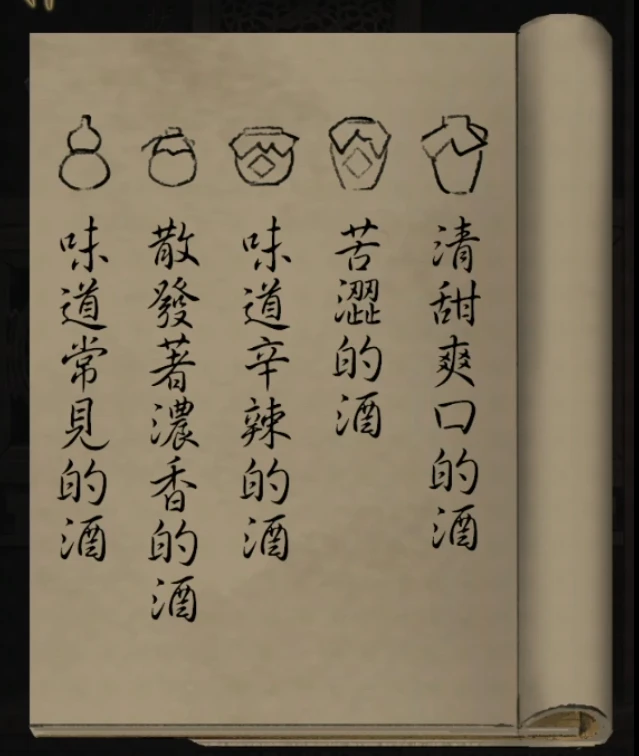 清甜爽口的酒
苦澀的酒
味道辛辣的酒
散發著濃香的酒
味道常見的酒